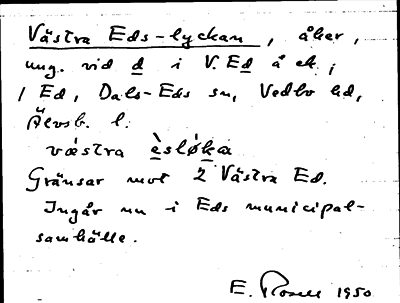 Västra Eds-lyckan, åker,
ung. vid d i V. Ed å ek.;
1 Ed, Dals-Eds sn, Vedbo hd,
Älvsb. l.
væstra èsløka
Gränsar mot 2 Västra Ed.
Ingår nu i Eds municipal-
samhälle.
E. 1950